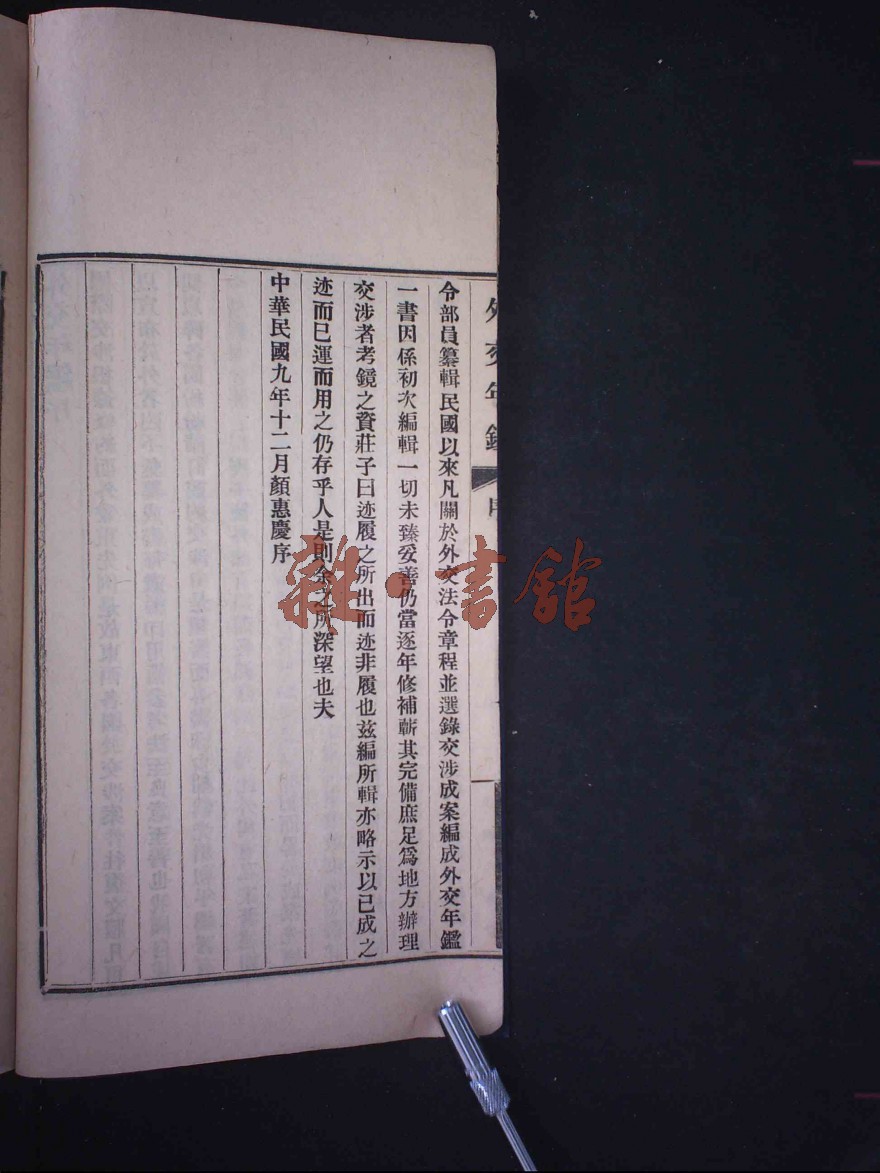 外交年鑑 序
令部員纂輯民國以來凡關於外交法令章程並選錄交涉成案編成外交年鑑
一書因係初次編輯一切未臻妥善仍當逐年修補蘄其完備庶足爲地方辦理
交涉者考鏡之資莊子曰迹履之所出而迹非履也茲編所輯亦略示以已成之
迹而已運而用之仍存乎人是則余之所深望也夫
中華民國九年十二月顏惠慶序
雜·書館